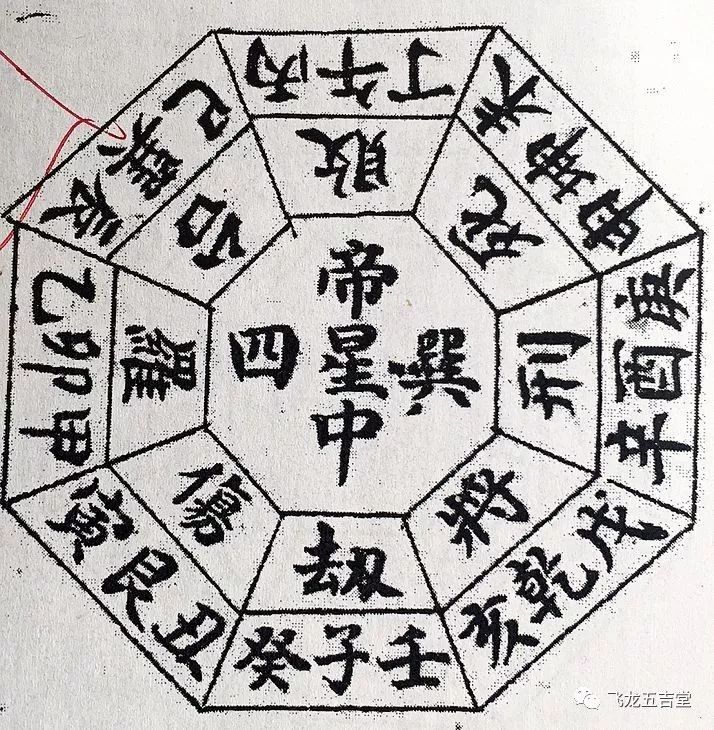 丙午丁
未坤申
庚酉辛
戌乾亥
壬子癸
丑艮寅
甲卯乙
辰巽巳
敗
死
刑
將
劫
傷
羅
台
帝星中
四巽
飞龙五吉堂